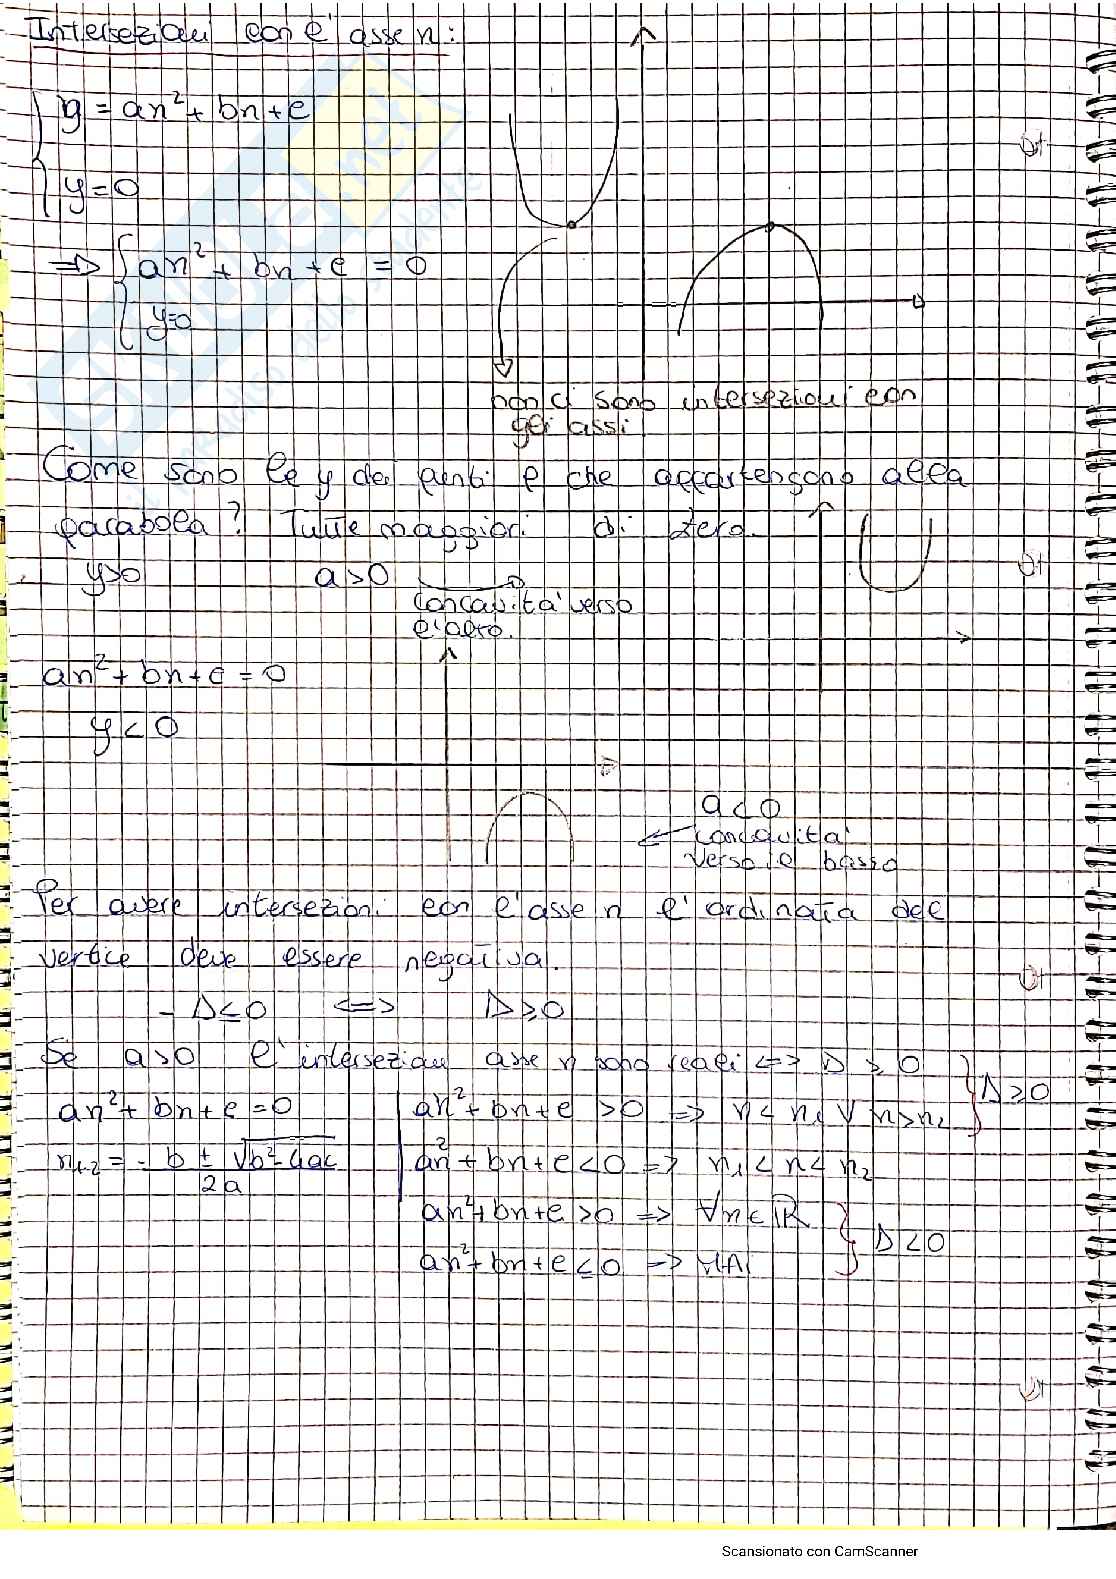 Intersezioni con l'asse x:
{ y = ax² + bx + c
y = 0
=> { ax² + bx + c = 0
y=0
non ci sono intersezioni con
gli assi.
Come sono le y dei punti P che appartengono alla
parabola? Tutte maggiori di zero.
y>0 a>0 →
concavità verso
l'alto.
ax² + bx + c = 0
y < 0
a < 0
← concavità
verso il basso
Per avere intersezioni con l'asse x l'ordinata del
vertice deve essere negativa.
- Δ ≤ 0 <=> Δ ≥ 0
Se a>0 l'intersezioni asse x sono reali <=> Δ ≥ 0
ax² + bx + c = 0 | ax² + bx + c > 0 => x < x₁ ∨ x > x₂ } Δ ≥ 0
x₁,₂ = - b ± √b² - 4ac / 2a | ax² + bx + c < 0 => x₁ < x < x₂
ax² + bx + c > 0 => ∀x ∈ ℝ } Δ < 0
ax² + bx + c ≤ 0 => MAI
SKUOLA.net
il paradiso dello studente
Scansionato con CamScanner